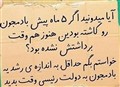 آیا میدونید اگر ۵ ماه پیش بادمجون
رو کاشته بودین هنوز هم وقت
برداشتش نشده بود؟
خواستم بگم حداقل به اندازه ی رشد یه
بادمجون به دولت رئیسی وقت بدید